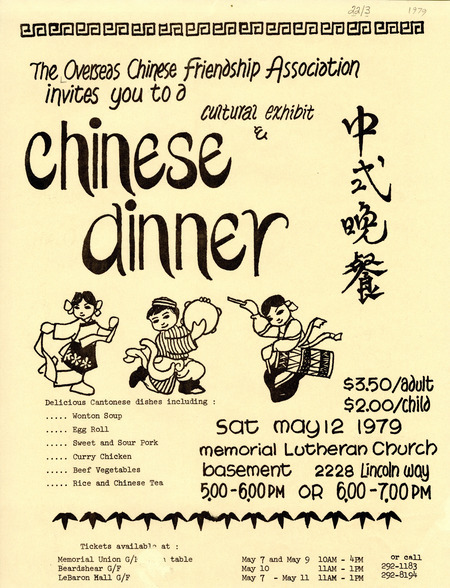 22/3 1979
The Overseas Chinese Friendship Association
invites you to a
cultural exhibit
&
chinese
dinner
中式晚餐
$3.50/adult
$2.00/child
Delicious Cantonese dishes including :
..... Wonton Soup
..... Egg Roll
..... Sweet and Sour Pork
..... Curry Chicken
..... Beef Vegetables
..... Rice and Chinese Tea
Sat may 12 1979
memorial Lutheran Church
basement 2228 Lincoln way
5.00-6.00 PM OR 6.00-7.00 PM
Tickets available at :
Memorial Union G/ table May 7 and May 9 10AM - 4PM
Beardshear G/F May 10 11AM - 1PM
LeBaron Hall G/F May 7 - May 11 11AM - 1PM
or call
292-1183
292-8194